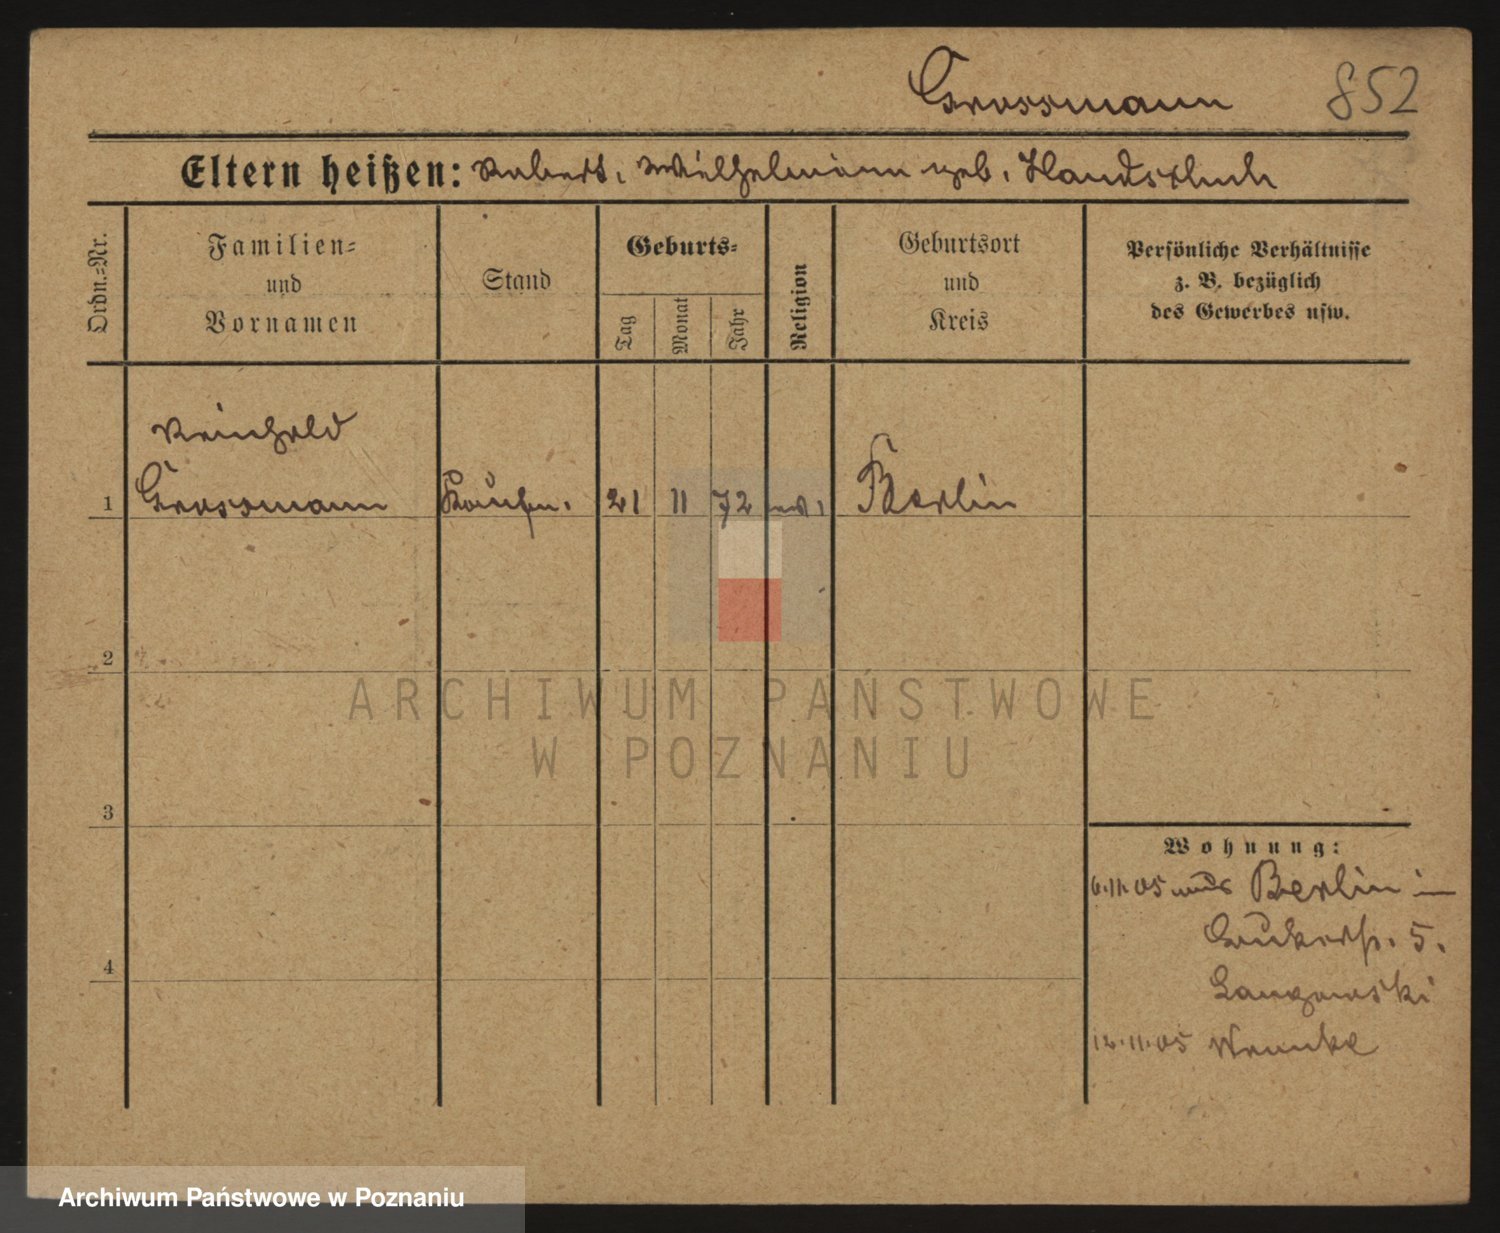 Grossmann 852
Eltern heißen: Robert, Wilhelmine geb. Handschuh
Ordn.-Nr.
Familien-
und
Vornamen
Stand
Geburts-
Tag
Monat
Jahr
Religion
Geburtsort
und
Kreis
Persönliche Verhältnisse
z. B. bezüglich
des Gewerbes usw.
Reinhold
1 Grossmann Kaufm. 21 11 72 Berlin
2
3
4
Wohnung:
6.11.05 aus Berlin in
5.
12.11.05
ARCHIWUM PAŃSTWOWE
W POZNANIU
Archiwum Państwowe w Poznaniu